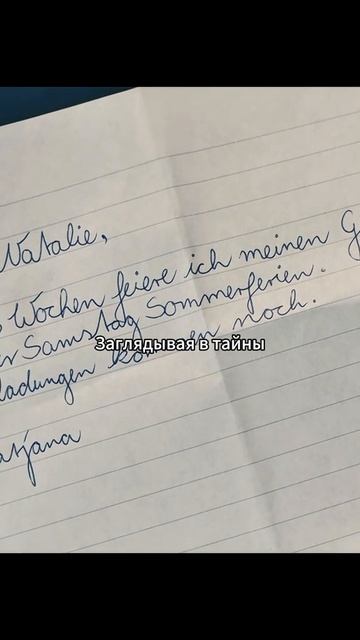 Natalie,
Wochen feiere ich meinen G
er Samstag Sommerferien.
ladungen kommen noch.
Заглядывая в тайны
atjana